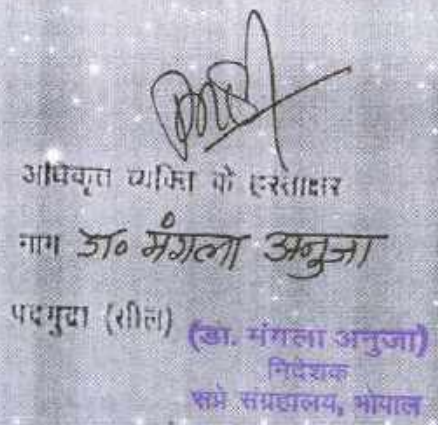 अधिकृत व्यक्ति के हस्ताक्षर
नाम डा० मंगला अनुजा
पदमुद्रा (सील)
(डा. मंगला अनुजा)
निदेशक
सप्रे संग्रहालय, भोपाल